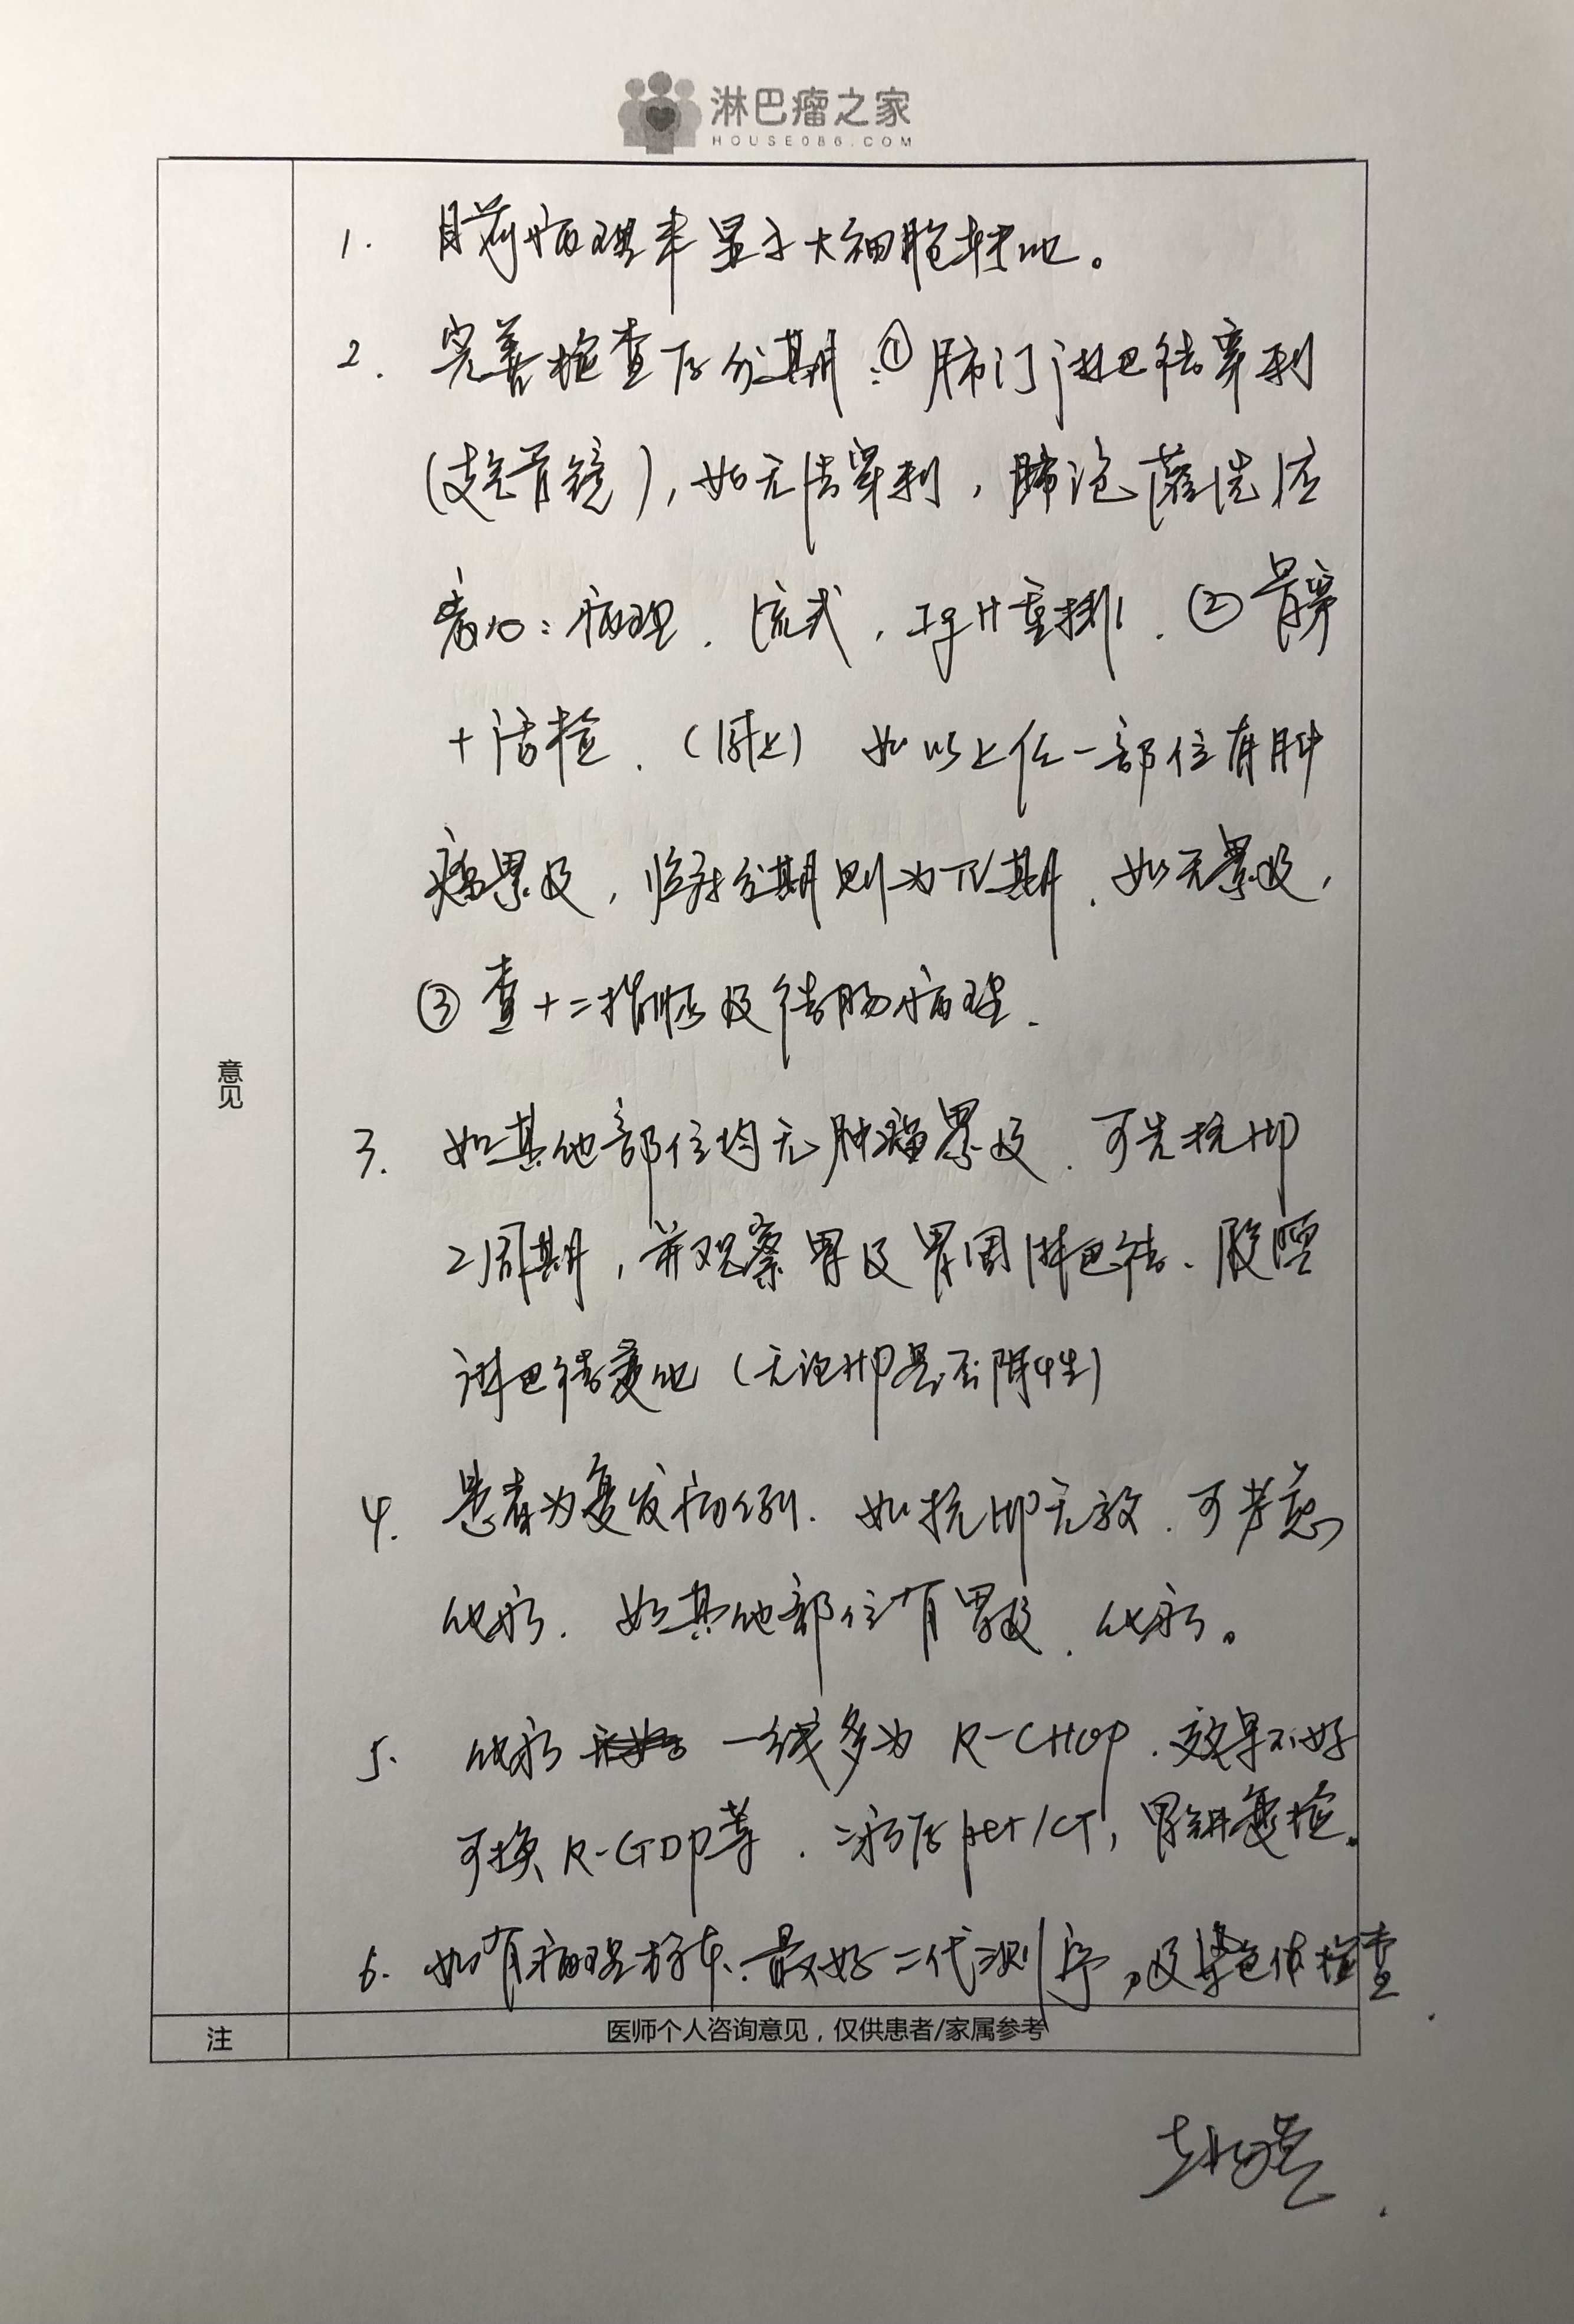 淋巴瘤之家
HOUSE086.COM
意见
1. 目前病理未显示大细胞转化。
2. 完善检查后分期:①肺门淋巴结穿刺
(支气管镜),如无法穿刺,肺泡灌洗液
病理、流式,IgH重排。②骨穿
+活检。 如以上任一部位有肿
瘤累及,临床分期则为IV期。如无累及,
③查十二指肠及结肠病理。
3. 如其他部位均无肿瘤累及,可先抗HP
2周期,并观察胃及胃周淋巴结、腹腔
淋巴结变化(无论HP是否阳性)
4. 患者为复发病例。如抗HP无效,可考虑
化疗。如其他部位有累及,化疗。
5. 化疗 一线多为R-CHOP,效果不好
可换R-GDP等。二疗后pet/CT,胃镜复检。
6. 如有病理标本,最好二代测序,及染色体检查
注
医师个人咨询意见,仅供患者/家属参考